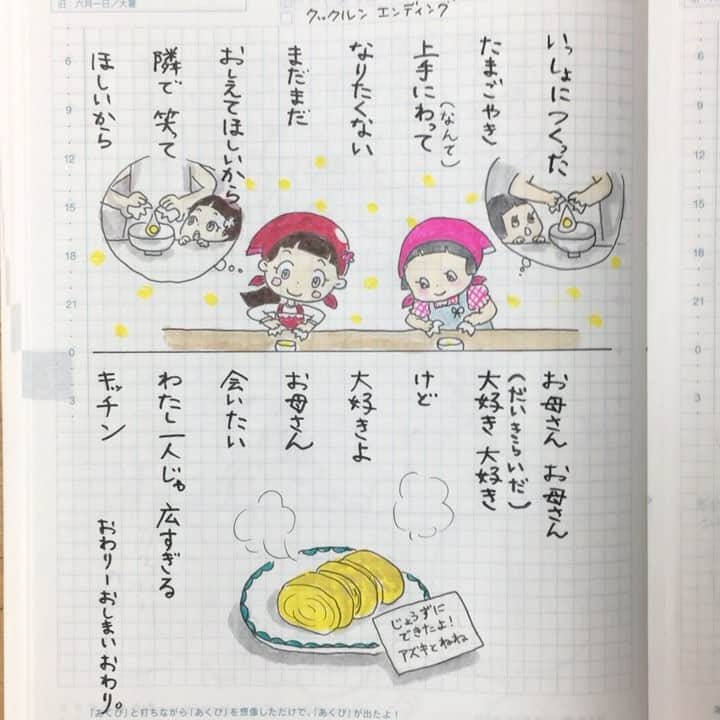 旧 六月一日/大暑
クックルン エンディング
いっしょにつくった
たまごやき
上手にわって
(なんて)
なりたくない
まだまだ
おしえてほしいから
隣で 笑って
ほしいから
6
9
12
15
18
21
0
3
お母さん お母さん
大好き 大好き
(だいきらいだ)
けど
大好きよ
お母さん
会いたい
わたし一人じゃ 広すぎる
キッチン
おわりーおしまいおわり。
じょうずに
できたよ!
アズキとねね
「あくび」と打ちながら「あくび」を想像しただけで、「あくび」が出たよ!